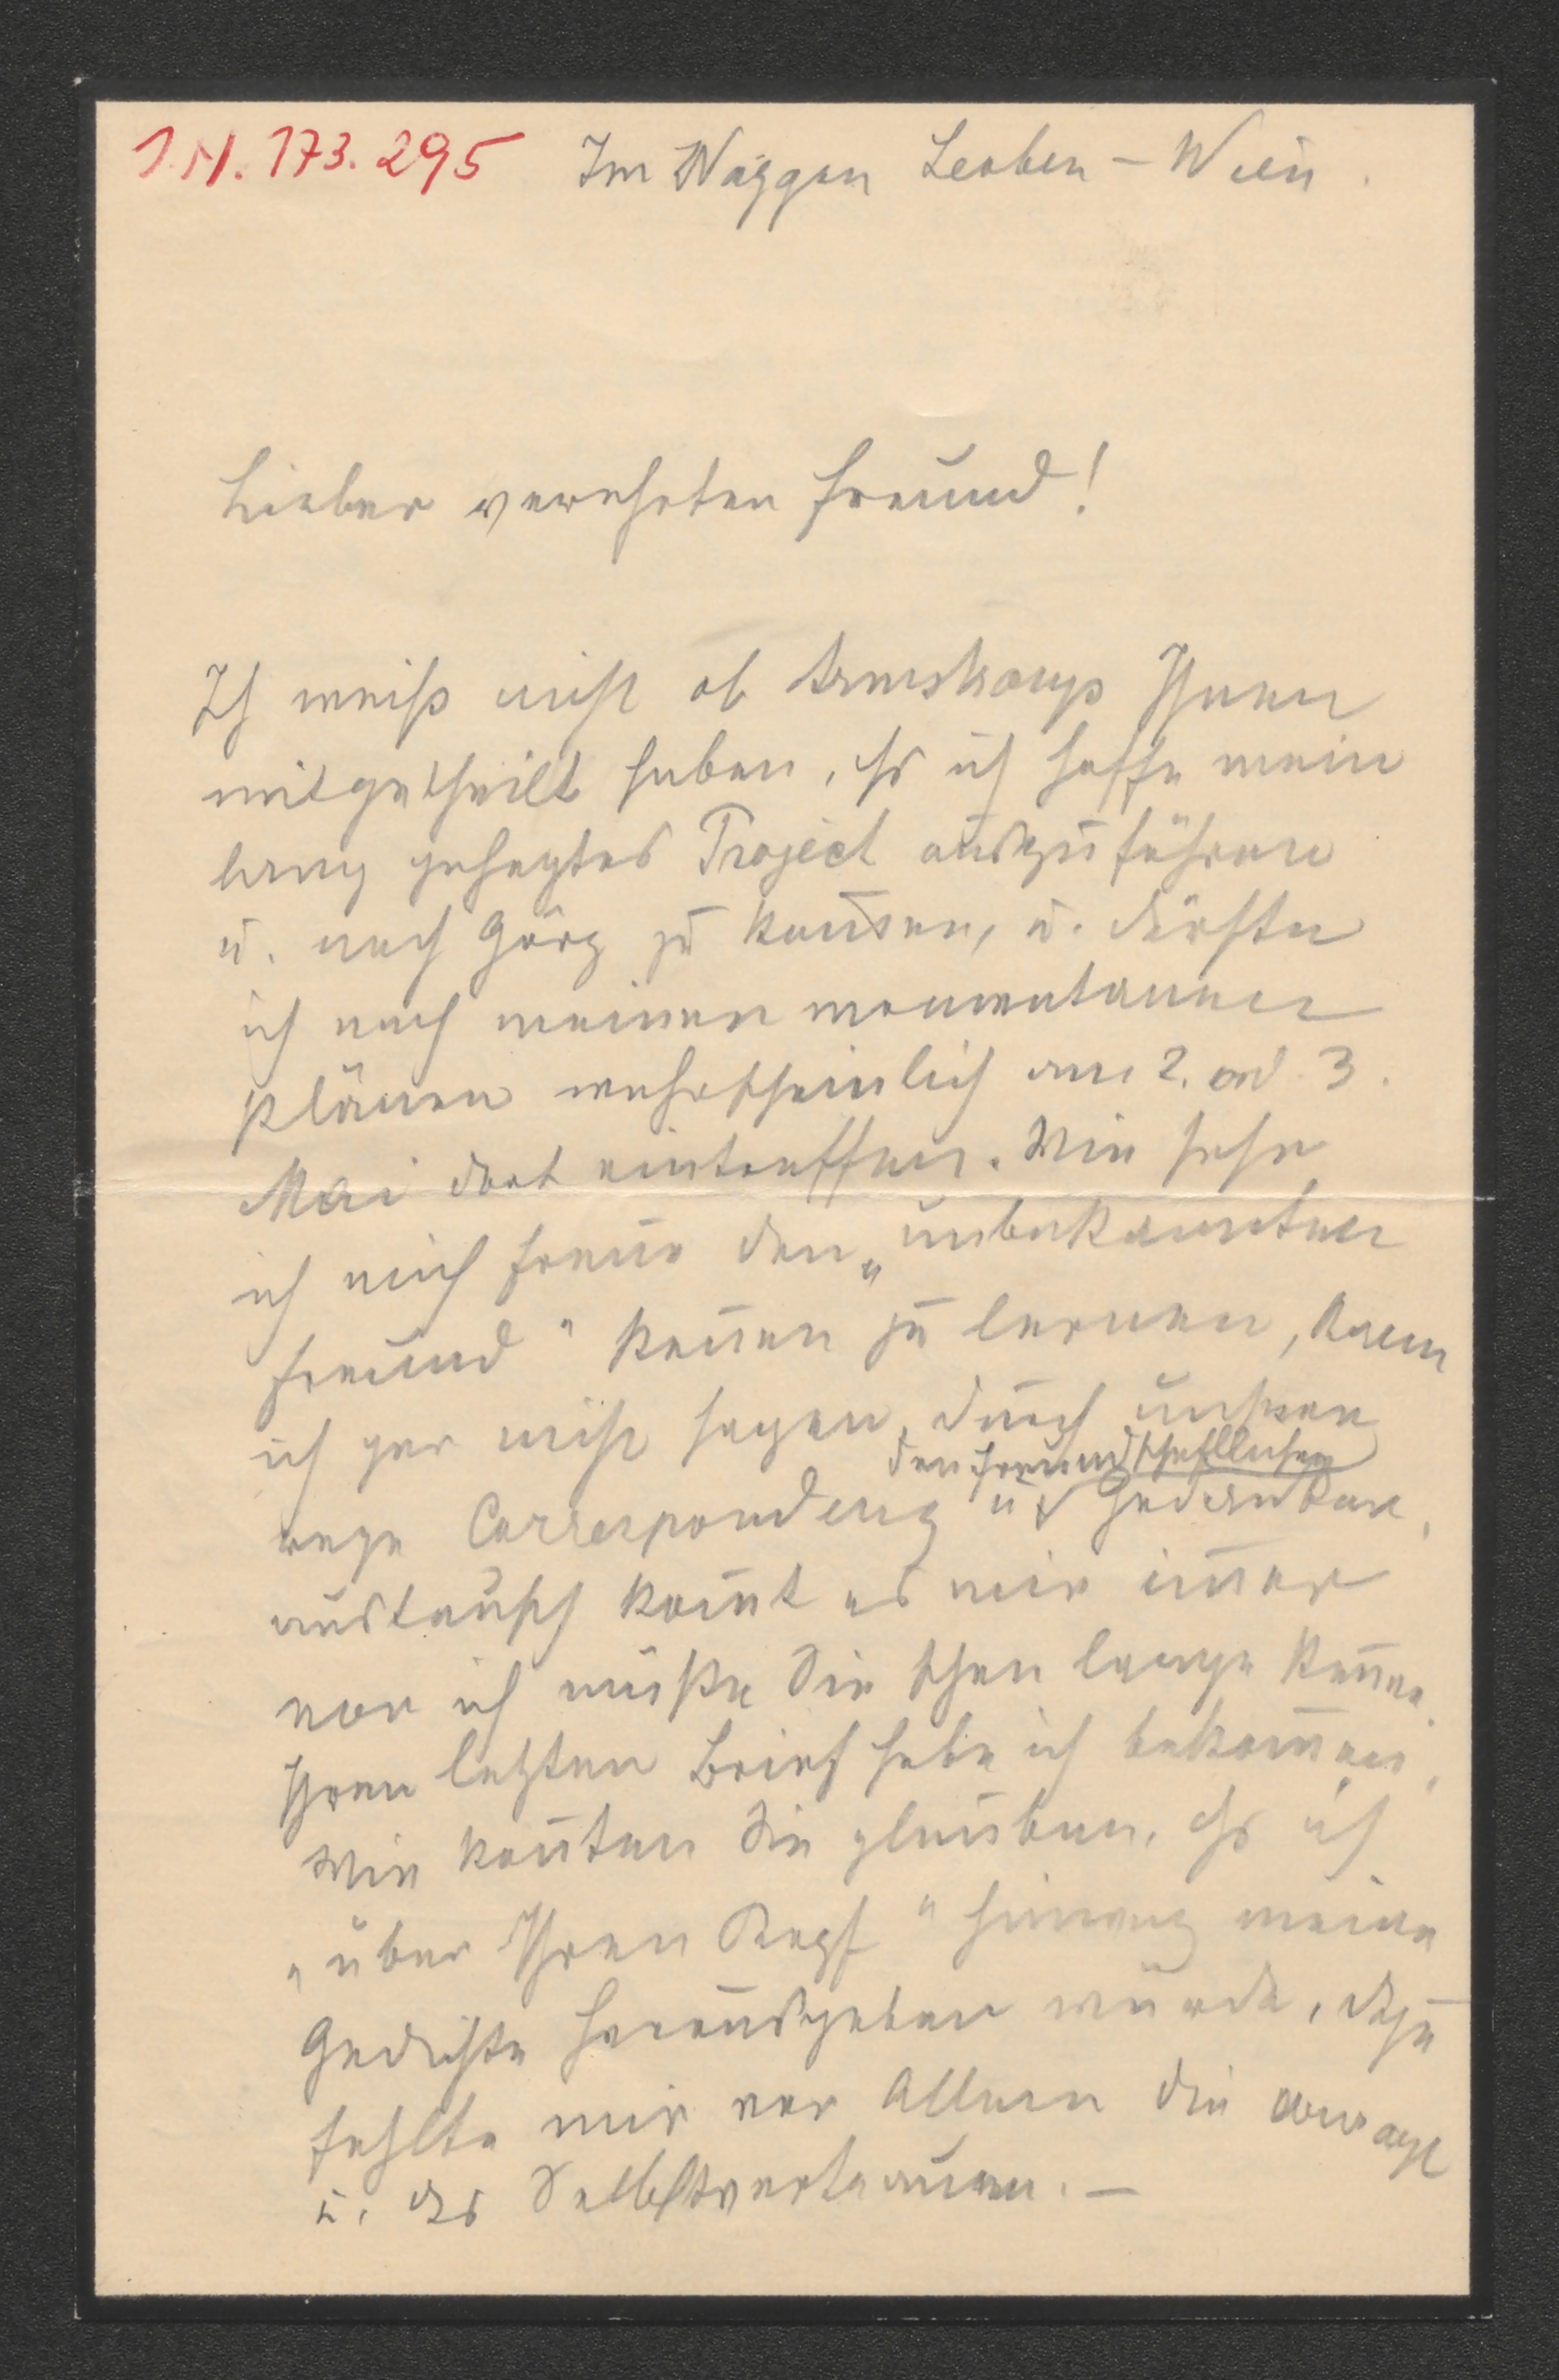 I.N. 173.295 Im Waggon Leoben – Wien.
Lieber verehrter Freund!
Ich weiß nicht ob Ihnen
mitgetheilt haben, dß ich hoffe mein
lang gehegtes Project auszuführen
u. nach Görz zu kom̄en, u. dürfte
ich nach meinen momentanen
Plänen wahrscheinlich am 2. od 3.
Mai dort eintreffen. Wie sehr
ich mich freue den „unbekannten
Freund" ken̄en zu lernen, kann
ich gar nicht sagen, durch unsere
den freundschaftlichen
rege Correspondenz u Gedanken
austausch kom̄t es mir im̄er
vor ich müßte Sie schon lange ken̄en.
Ihren letzten Brief habe ich bekom̄en,
wie kon̄ten Sie glauben, dß ich
„über Ihren Kopf" hinweg meine
Gedichte herausgeben würde, dazu
fehlte mir vor Allem die
u. das Selbstvertrauen. –